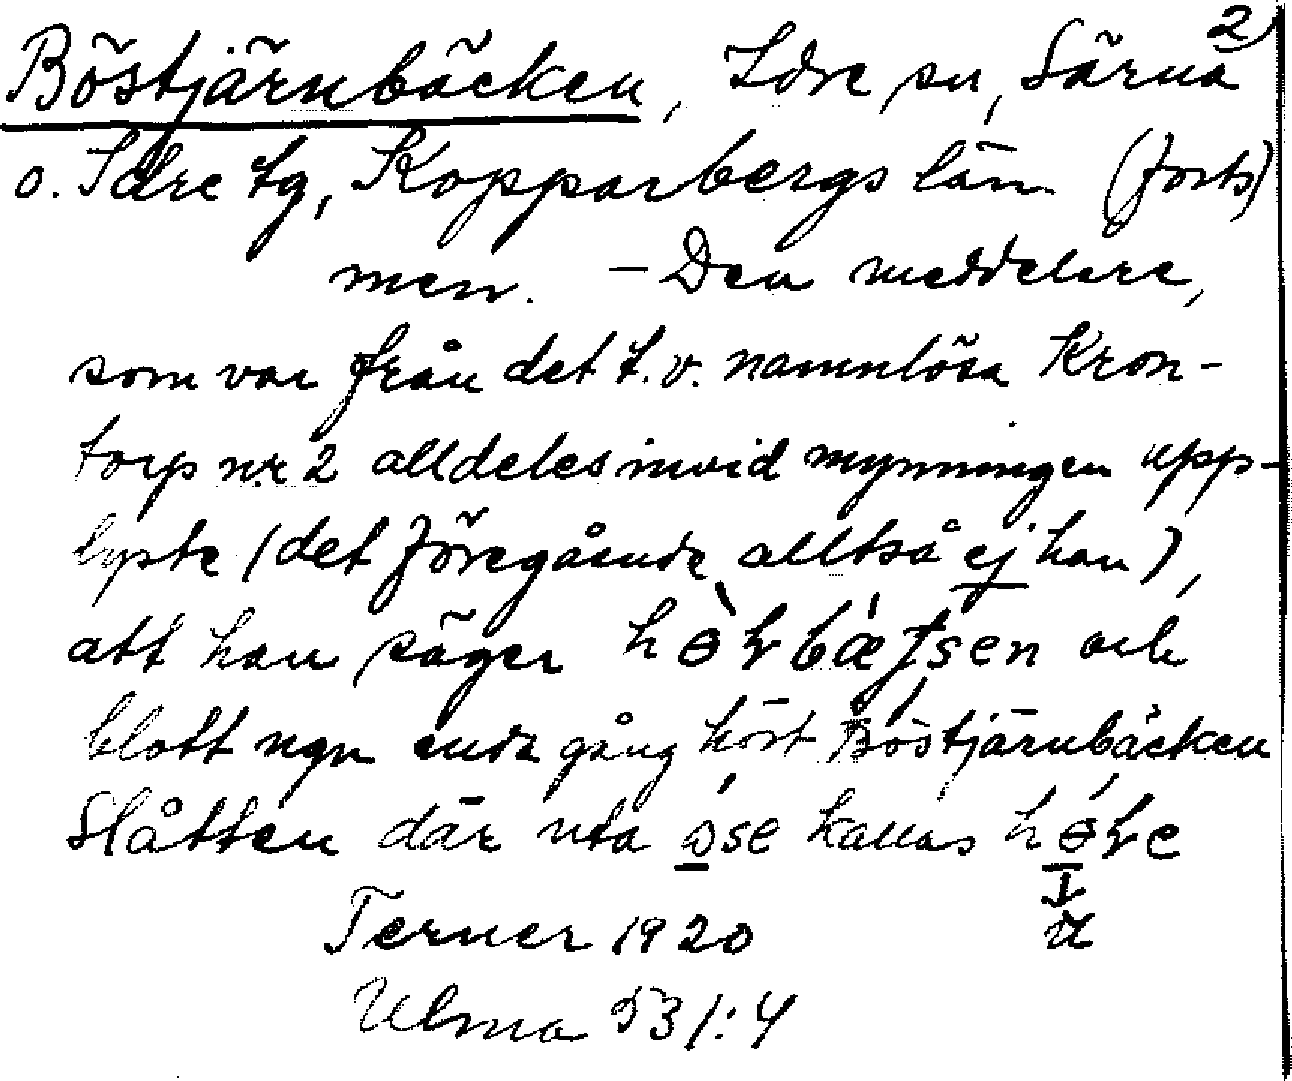 2)
Böstjärnbäcken, Idre sn, Särna
o. Idre tg, Kopparbergs län (forts)
men. – Den meddelare,
som var från det t.v. namnlösa Kron-
torp nr 2 alldeles invid mynningen upp-
lyste (det föregående alltså ej han),
att han säger och
blott ngn enda gång hört Böstjärnbäcken
Slåtten där uta kallas
Terner 1920
Ulma 531:4